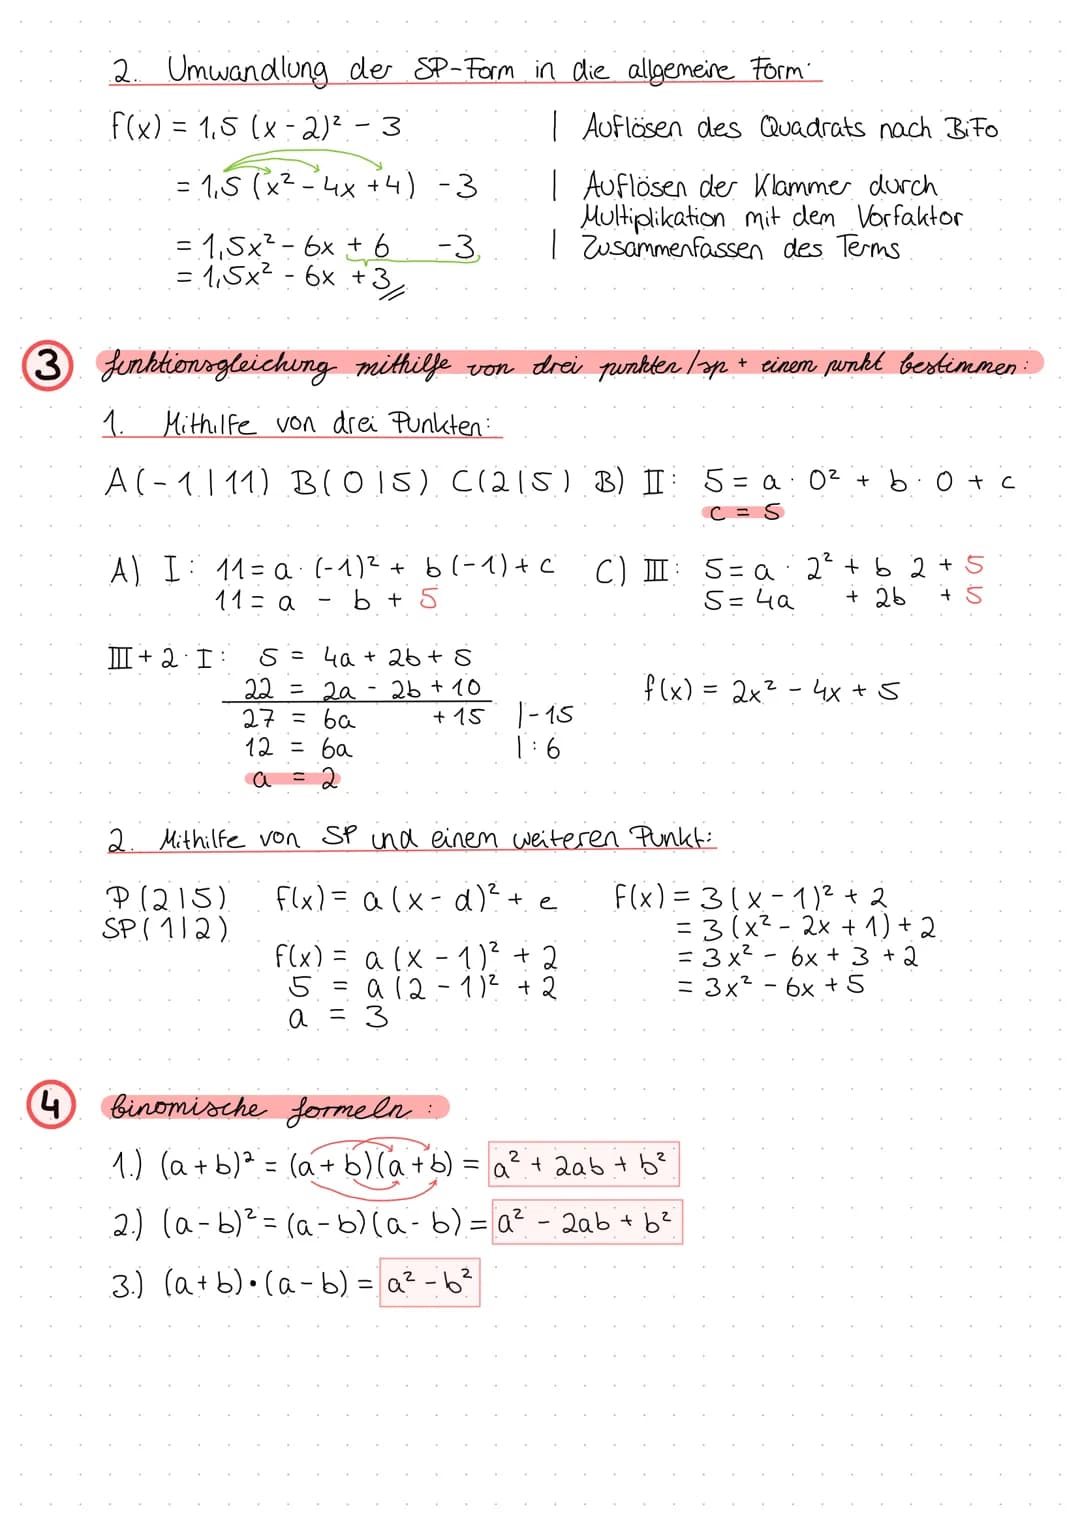 2. Umwandlung der SP-Form in die allgemeine Form:
f(x) = 1,5 (x - 2)² - 3 | Auflösen des Quadrats nach BiFo
= 1,5 (x² - 4x + 4) - 3 | Auflösen der Klammer durch
Multiplikation mit dem Vorfaktor
= 1,5x² - 6x + 6 - 3 | Zusammenfassen des Terms
= 1,5x² - 6x + 3
3 funktionsgleichung mithilfe von drei punkten/sp + einem punkt bestimmen:
1. Mithilfe von drei Punkten:
A(-1|11) B(0|5) C(2|5) B) II: 5 = a · 0² + b · 0 + c
c = 5
A) I: 11 = a · (-1)² + b (-1) + c C) III: 5 = a · 2² + b 2 + 5
11 = a - b + 5 5 = 4a + 2b + 5
III + 2 · I: 5 = 4a + 2b + 5
22 = 2a - 2b + 10 f(x) = 2x² - 4x + 5
27 = 6a + 15 |-15
12 = 6a |:6
a = 2
2. Mithilfe von SP und einem weiteren Punkt:
P(2|5) f(x) = a (x - d)² + e f(x) = 3 (x - 1)² + 2
SP(1|2) = 3 (x² - 2x + 1) + 2
f(x) = a (x - 1)² + 2 = 3x² - 6x + 3 + 2
5 = a (2 - 1)² + 2 = 3x² - 6x + 5
a = 3
4 binomische formeln:
1.) (a + b)² = (a + b)(a + b) = a² + 2ab + b²
2.) (a - b)² = (a - b)(a - b) = a² - 2ab + b²
3.) (a + b) • (a - b) = a² - b²